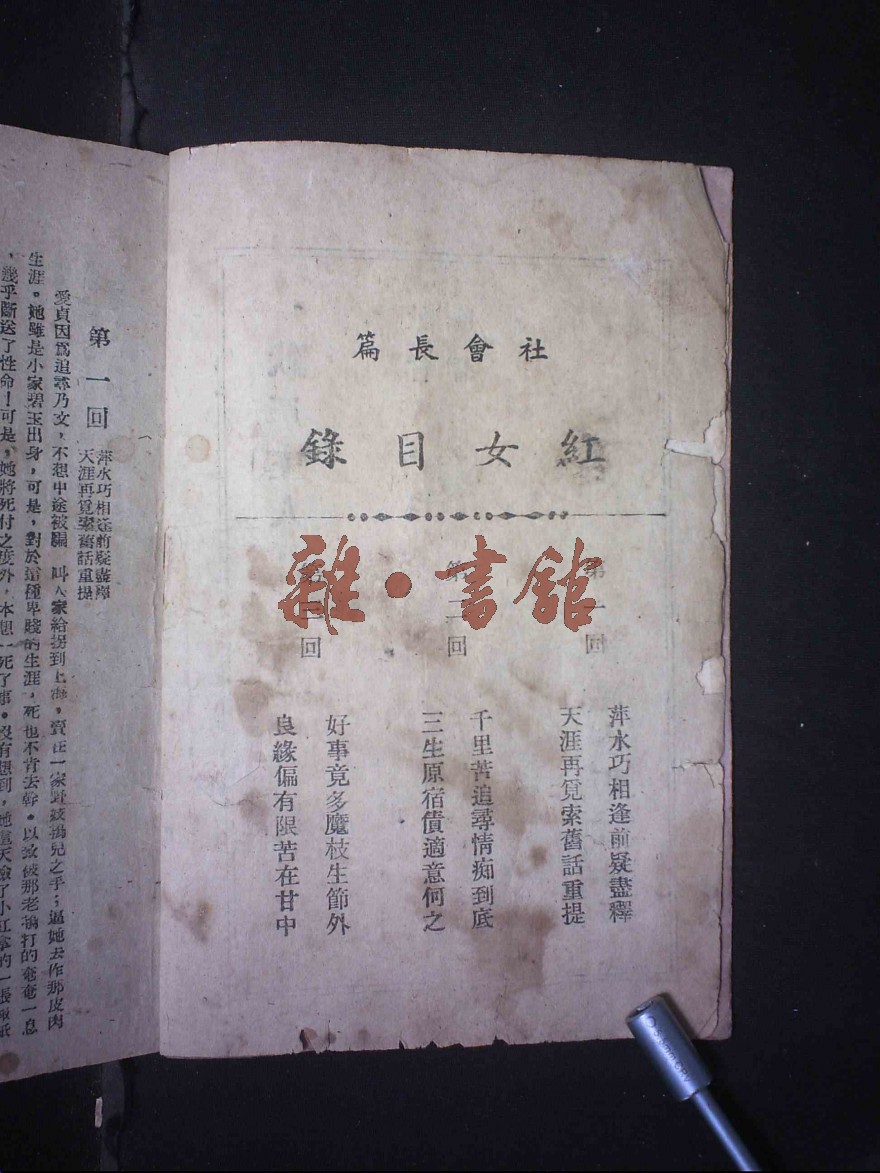 社會長篇
紅女目錄
第一回
萍水巧相逢前疑盡釋
天涯再覓索舊話重提
第二回
千里苦追尋情痴到底
三生原宿債適意何之
第三回
好事竟多魔枝生節外
良緣偏有限苦在甘中
雜·書館
第一回
萍水巧相逢前疑盡釋
天涯再覓索舊話重提
愛貞因爲追尋乃文，不想中途被騙 叫人家給拐到上海，賣在一家野鷄鴇兒之手；逼她去作那皮肉
生涯。她雖是小家碧玉出身，可是，對於這種卑賤的生涯，死也不肯去幹。以致被那老鴇打的奄奄一息
，幾乎斷送了性命！可是，她將死付之度外，本想一死了事。沒有想到，她這天撿了小紅拿的一張報紙